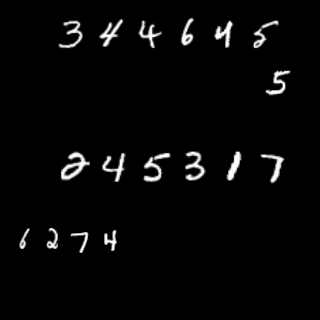 344645
5
245317
6274